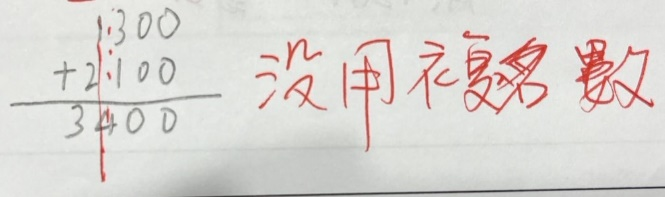 1:300
+2:100
3400
没用複名數